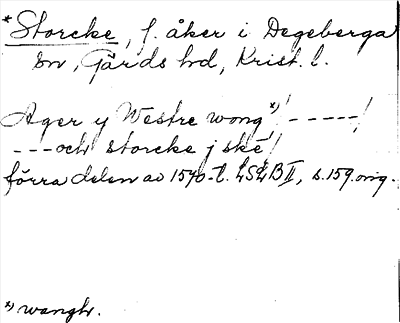 *Storcke, f. åker i Degeberga
sn, Gärds hd, Krist. l.
Ager y Westre wong*)! -----!
---och storcke j ské!
förra delen av 1570-t. LSLB II, s. 159. orig.
*) wangh.